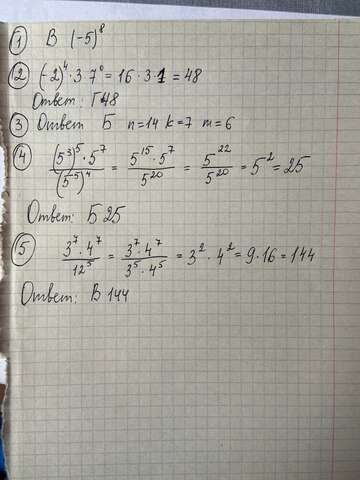 1 В (-5)⁸
2 (-2)⁴·3·7⁰ = 16·3·1 = 48
Ответ: Г 48
3 Ответ Б n=14 k=7 m=6
4 (5³)⁵·5⁷/(5⁻⁵)⁴ = 5¹⁵·5⁷/5²⁰ = 5²²/5²⁰ = 5² = 25
Ответ: Б 25
5 3⁷·4⁷/12⁵ = 3⁷·4⁷/3⁵·4⁵ = 3²·4² = 9·16 = 144
Ответ: В 144